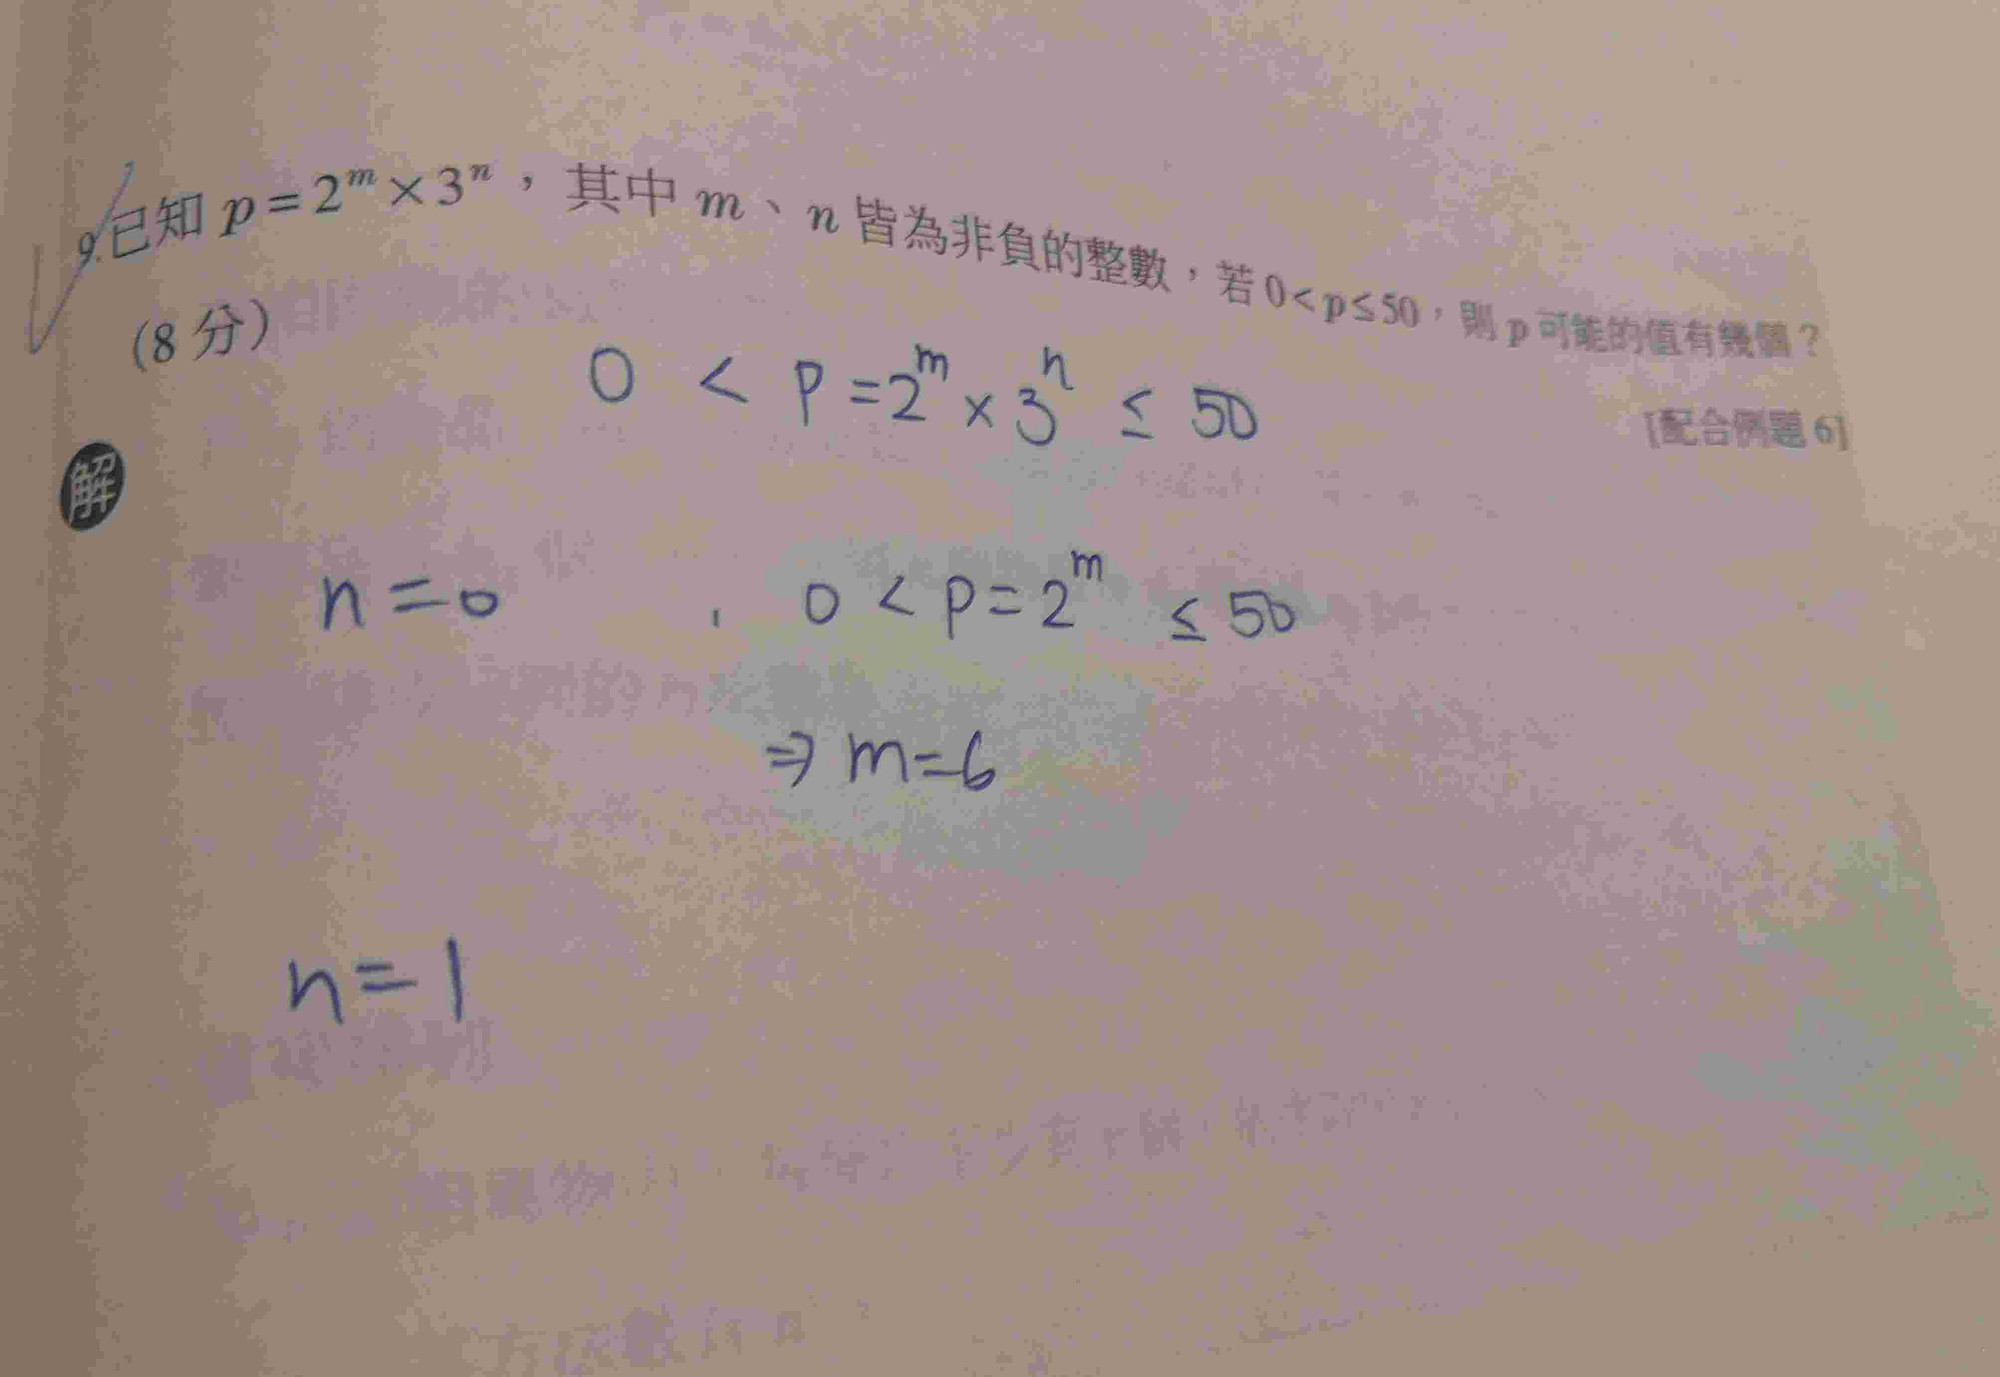 9.已知 p=2^m×3^n，其中 m、n 皆為非負的整數，若 0<p≤50，則 p 可能的值有幾個？
(8 分)
[配合例題 6]
解
0 < p = 2^m × 3^n ≤ 50
n=0 , 0 < p = 2^m ≤ 50
⇒ m=6
n=1